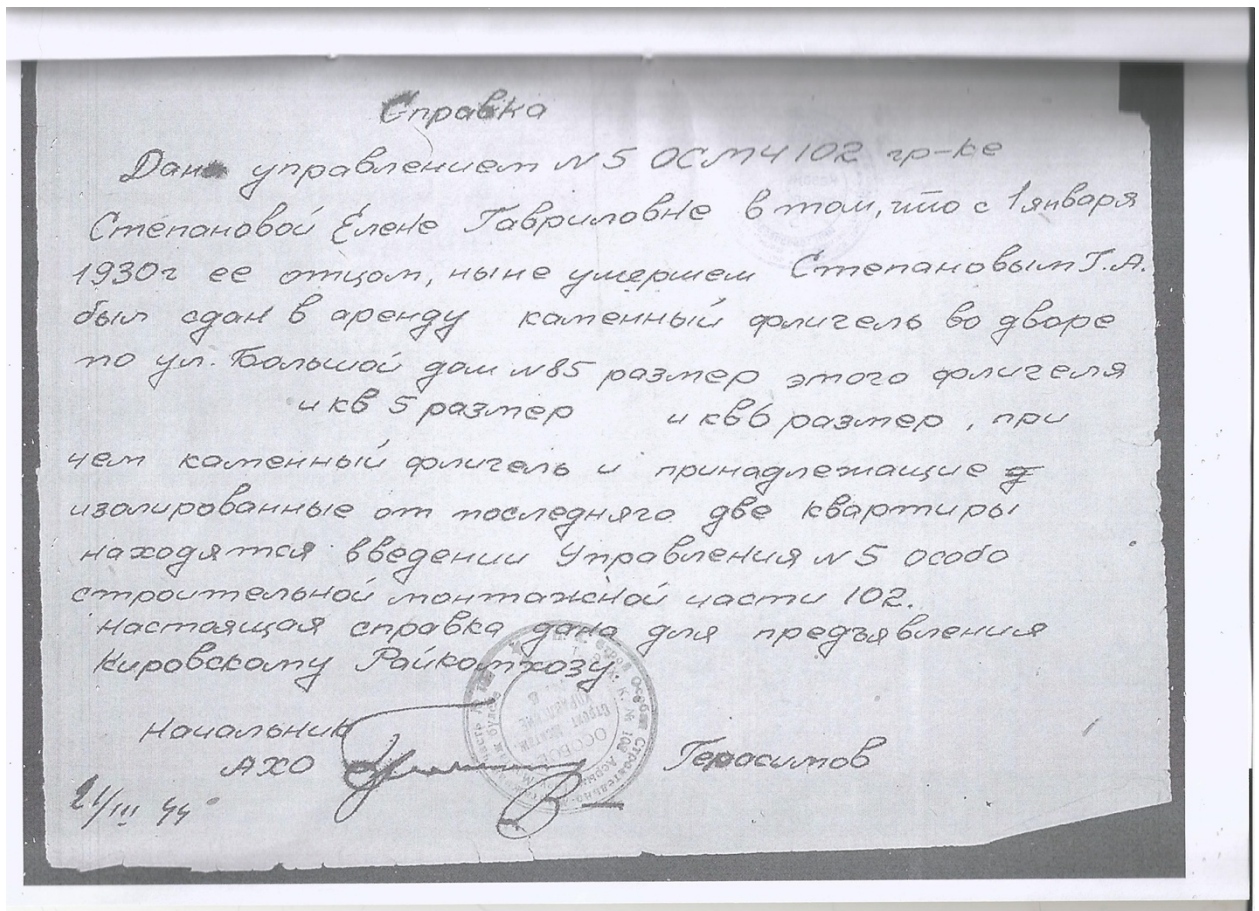 Справка
Дана управлением N5 ОСМЧ 102 гр-ке
Степановой Елене Гавриловне в том, что с 1 января
1930г ее отцом, ныне умершем Степановым Г.А.
был сдан в аренду каменный флигель во дворе
по ул. Большой дом N85 размер этого флигеля
и кв 5 размер и кв6 размер, при
чем каменный флигель и принадлежащие
изолированные от последняго две квартиры
находятся введении Управления N5 особо
строительной монтажной части 102.
настоящая справка дана для предъявления
Кировскому Райкомхозу.
Начальник
АХО Герасимов
21/III 44